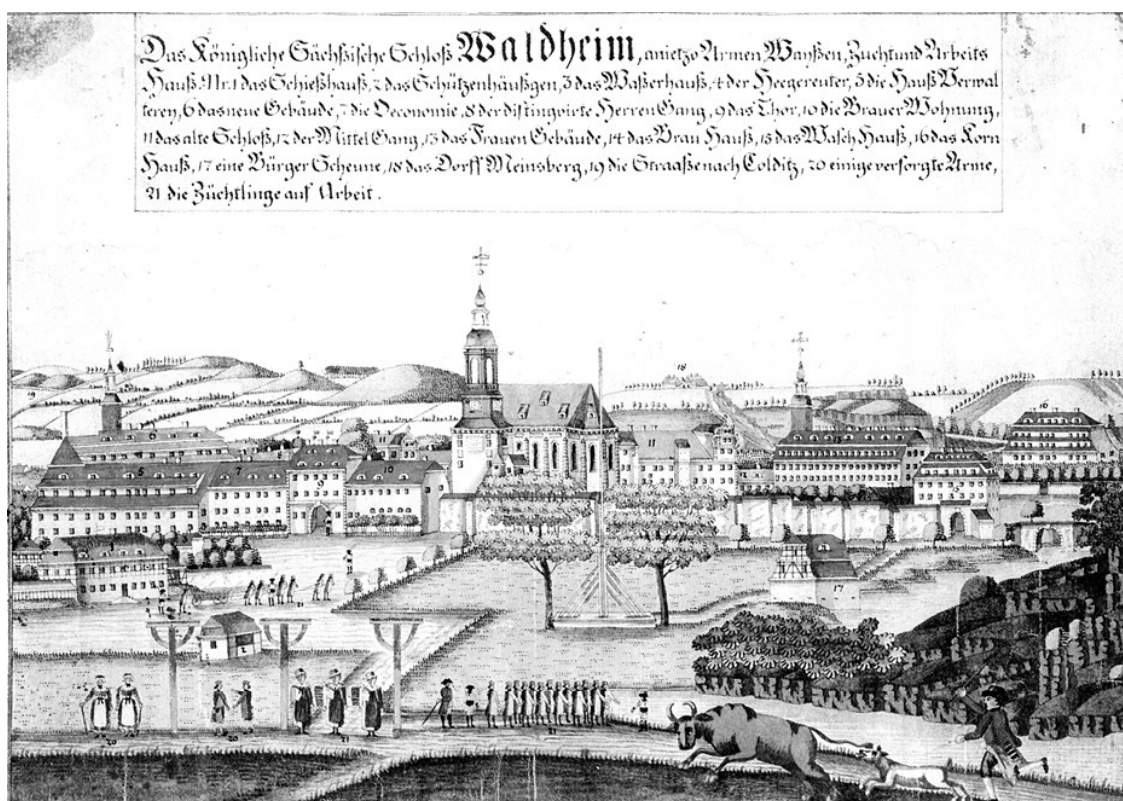 Das Königliche Sächßische Schloß Waldheim, anietzo Armen Wayßen, Zucht und Arbeits
Hauß. Nr. 1 das Schießhauß, 2 das Schützenhäußgen, 3 das Waßerhauß, 4 der Heegereuter, 5 die Hauß Verwal
terey, 6 das neue Gebäude, 7 die Oeconomie, 8 der distingvirte Herren Gang, 9 das Thor, 10 die Brauer Wohnung,
11 das alte Schloß, 12 der Mittel Gang, 13 das Frauen Gebäude, 14 das Brau Hauß, 15 das Wasch Hauß, 16 das Korn
Hauß, 17 eine Bürger Scheune, 18 das Dorff Meinsberg, 19 die Straaße nach Colditz, 20 einige versorgte Arme,
21 die Züchtlinge auf Arbeit.
18
16
6
11
5
7
9
10
17
2
20
20
21
21